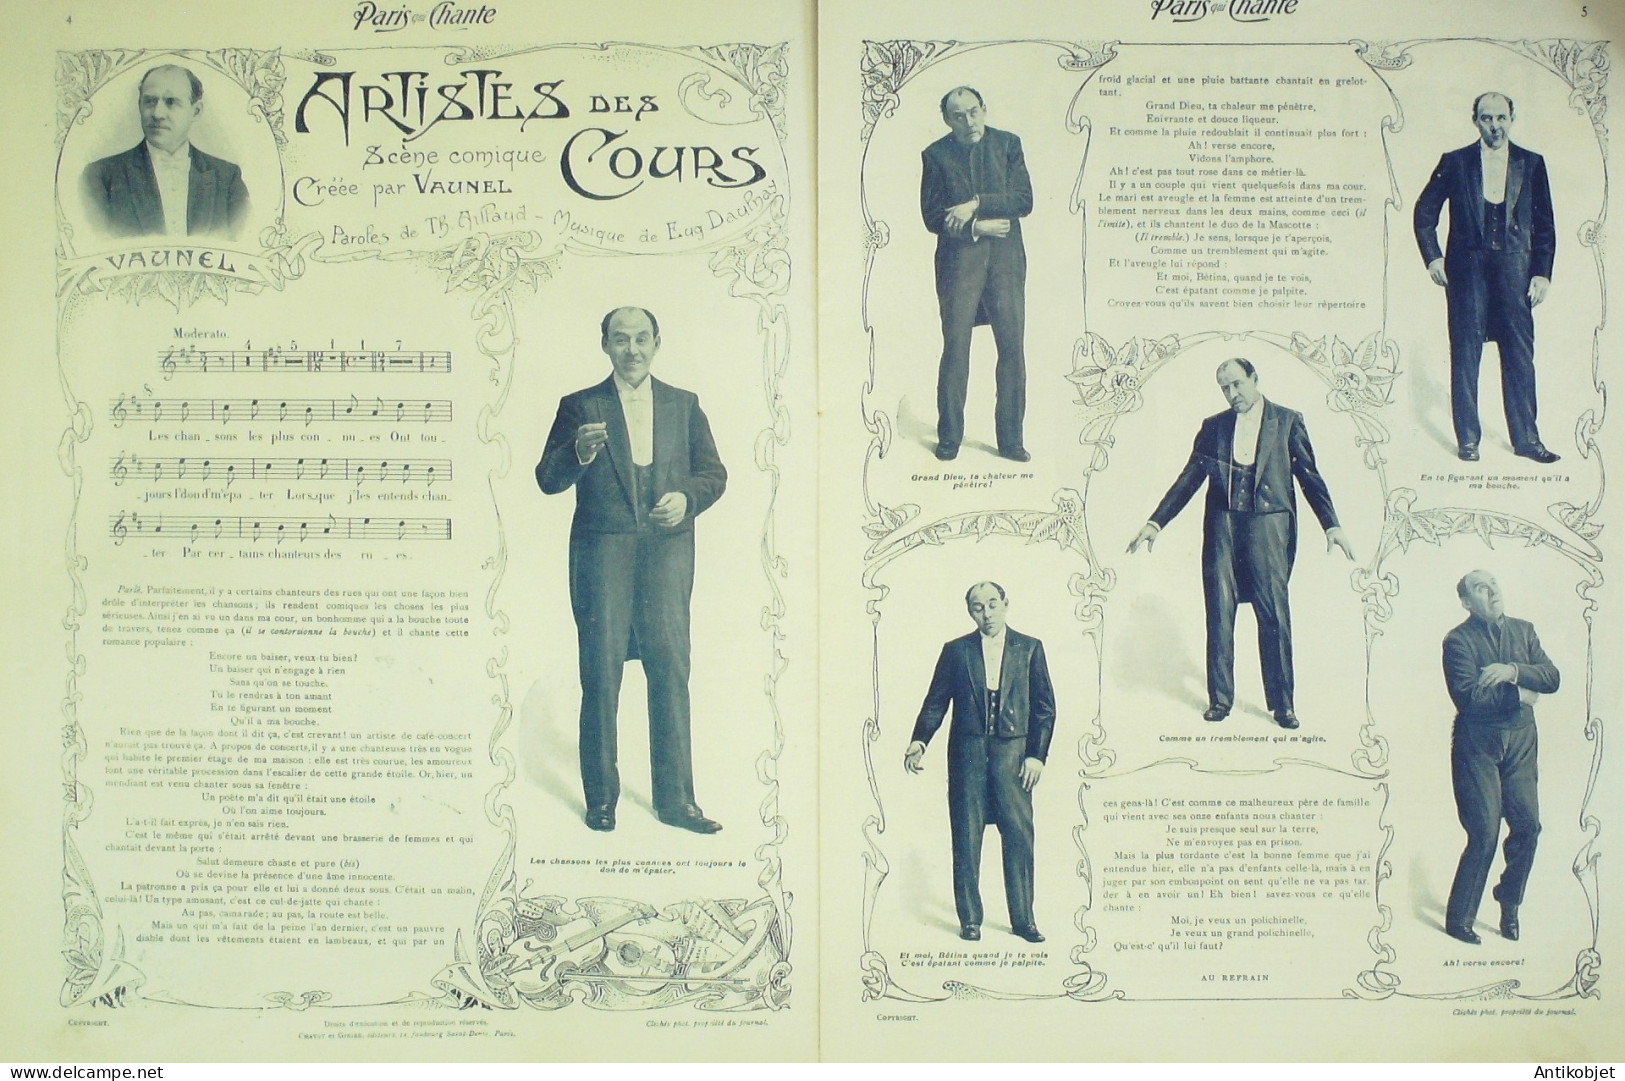 4
Paris qui Chante
ARTISTES DES COURS
Scène comique
Créée par VAUNEL
Paroles de Th. Aillaud - Musique de Eug. Daulnay
VAUNEL
Moderato.
4 5 1 1 7
Les chan - sons les plus con - nu - es Ont tou -
- jours l'don d'm'épa - ter Lors-que j'les entends chan-
- ter Par cer - tains chanteurs des ru - es.
Parlé. Parfaitement, il y a certains chanteurs des rues qui ont une façon bien
drôle d'interpréter les chansons ; ils rendent comiques les choses les plus
sérieuses. Ainsi j'en ai vu un dans ma cour, un bonhomme qui a la bouche toute
de travers, tenez comme ça (il se contorsionne la bouche) et il chante cette
romance populaire :
Encore un baiser, veux-tu bien?
Un baiser qui n'engage à rien
Sans qu'on se touche.
Tu le rendras à ton amant
En te figurant un moment
Qu'il a ma bouche.
Rien que de la façon dont il dit ça, c'est crevant! un artiste de café-concert
n'aurait pas trouvé ça. A propos de concerts, il y a une chanteuse très en vogue
qui habite le premier étage de ma maison : elle est très courue, les amoureux
font une véritable procession dans l'escalier de cette grande étoile. Or, hier, un
mendiant est venu chanter sous sa fenêtre :
Un poète m'a dit qu'il était une étoile
Où l'on aime toujours.
L'a-t-il fait exprès, je n'en sais rien.
C'est le même qui s'était arrêté devant une brasserie de femmes et qui
chantait devant la porte :
Salut demeure chaste et pure (bis)
Où se devine la présence d'une âme innocente.
La patronne a pris ça pour elle et lui a donné deux sous. C'était un malin,
celui-là! Un type amusant, c'est ce cul-de-jatte qui chante :
Au pas, camarade; au pas, la route est belle.
Mais un qui m'a fait de la peine l'an dernier, c'est un pauvre
diable dont les vêtements étaient en lambeaux, et qui par un
Les chansons les plus connues ont toujours le
don de m'épater.
COPYRIGHT.
Droits d'exécution et de reproduction réservés.
Clichés phot. propriété du journal.
Paris qui Chante
5
froid glacial et une pluie battante chantait en grelot-
tant.
Grand Dieu, ta chaleur me pénètre,
Enivrante et douce liqueur.
Et comme la pluie redoublait il continuait plus fort :
Ah! verse encore,
Vidons l'amphore.
Ah! c'est pas tout rose dans ce métier-là.
Il y a un couple qui vient quelquefois dans ma cour.
Le mari est aveugle et la femme est atteinte d'un trem-
blement nerveux dans les deux mains, comme ceci (il
l'imite), et ils chantent le duo de la Mascotte :
(Il tremble.) Je sens, lorsque je t'aperçois,
Comme un tremblement qui m'agite.
Et l'aveugle lui répond :
Et moi, Bétina, quand je te vois,
C'est épatant comme je palpite.
Croyez-vous qu'ils savent bien choisir leur répertoire
Grand Dieu, ta chaleur me
pénètre!
En te figurant un moment qu'il a
ma bouche.
Comme un tremblement qui m'agite.
ces gens-là! C'est comme ce malheureux père de famille
qui vient avec ses onze enfants nous chanter :
Je suis presque seul sur la terre,
Ne m'envoyez pas en prison.
Mais la plus tordante c'est la bonne femme que j'ai
entendue hier, elle n'a pas d'enfants celle-là, mais à en
juger par son embonpoint on sent qu'elle ne va pas tar-
der à en avoir un! Eh bien! savez-vous ce qu'elle
chante :
Moi, je veux un polichinelle,
Je veux un grand polichinelle,
Qu'est-c' qu'il lui faut?
AU REFRAIN
Et moi, Bétina quand je te vois
C'est épatant comme je palpite.
Ah! verse encore!
COPYRIGHT.
Clichés phot. propriété du journal.
www.delcampe.net
Antikobjet